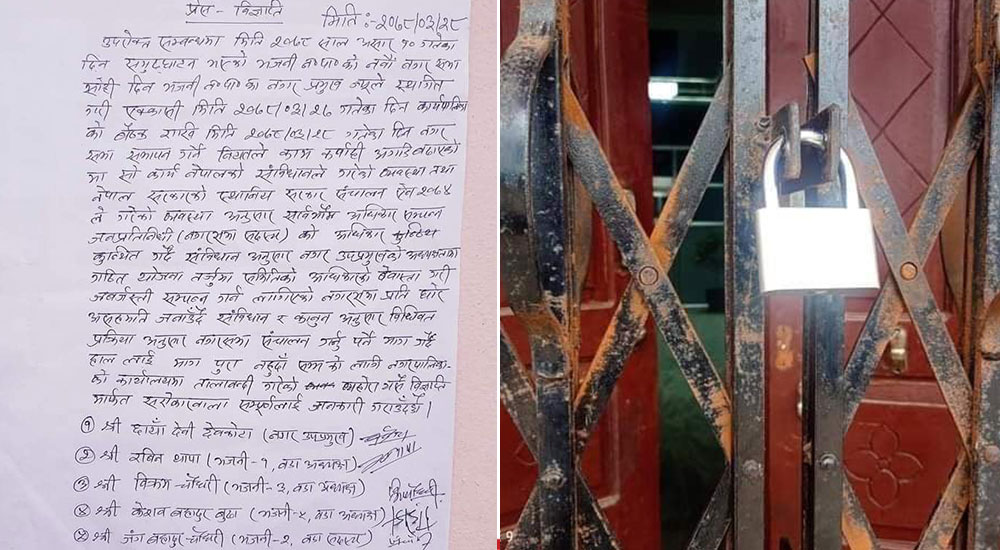 प्रेस - विज्ञप्ति
मिति :- २०७९/०३/२९
उपरोक्त सम्बन्धमा मिति २०७९ साल असार १० गतेका
दिन समुद्घाटन भएको भजनी न०पा० को नवौं नगर सभा
सोही दिन भजनी न०पा० का नगर प्रमुख ज्यूले स्थागित
गरी एक्कासी मिति २०७९/०३/२८ गतेका दिन कार्यपालिका
को बैठक राखि मिति २०७९/०३/२९ गतेका दिन नगर
सभा समापन गर्ने नियतले काम कार्वाही अगाडि बढाएको
मा सो कार्य नेपालको संविधानले गरेको व्यवस्था तथा
नेपाल सरकारको स्थानिय सरकार संचालन ऐन २०७४
ले गरेको व्यवस्था अनुसार सार्वभौम अधिकार सम्पन्न
जनप्रतिनिधी (नगरसभा सदस्य) को अधिकार
कुण्ठित गर्दै संविधान अनुसार नगर उपप्रमुखको अध्यक्षतामा
गठित योजना तर्जुमा समितिको अधिकारको वेवास्ता गरी
जबर्जस्ती सम्पन्न गर्न लागिएको नगरसभा प्रति घोर
असहमति जनाउँदै संविधान र कानुन अनुसार विधिवत
प्रक्रिया अनुसार नगरसभा संचालन गर्नु पर्ने माग गर्दै
हाल लाई माग पुरा नहुदाँ सम्मको लागि नगरपालिका-
को कार्यालयमा तालाबन्दी गरेको व्यहोरा गर्दै विज्ञप्ति
मार्फत सरोकारवाला सम्पूर्णलाई जानकारी गराउँदछौं।
१ श्री छायाँ देवी देवकोटा (नगर उपप्रमुख)
२ श्री रबिन थापा (भजनी-१, वडा अध्यक्ष)
३ श्री विक्रम चौधरी (भजनी-३, वडा अध्यक्ष)
४ श्री केशव बहादुर बुढा (भजनी-५, वडा अध्यक्ष)
५ श्री जंग बहादुर चौधरी (भजनी-२, वडा सदस्य)